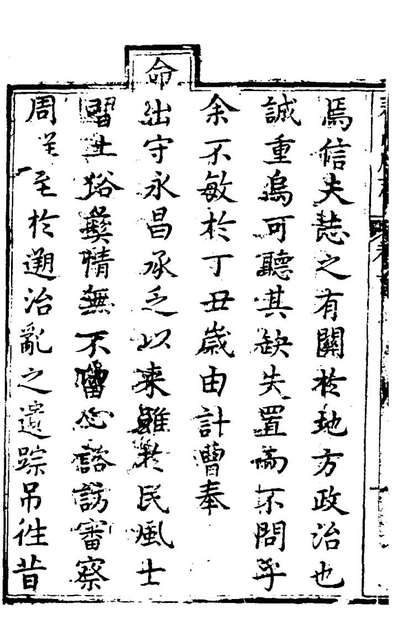 焉信夫誌之有關於地方政治也
誠重烏可聽其缺失置而不問乎
余不敏於丁丑歲由計曹奉
命出守永昌承乏以來雖於民風士
習土俗彝情無不留心諮訪審察
周至於遡治亂之遺踪吊徃昔